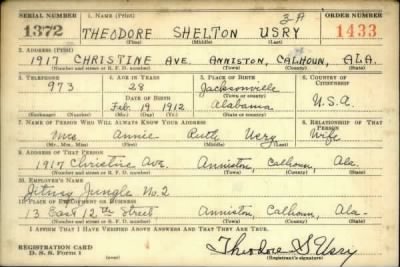 SERIAL NUMBER 1. NAME (Print) 3-A ORDER NUMBER
1372 THEODORE SHELTON USRY 1433
(First) (Middle) (Last)
2. ADDRESS (Print)
1917 CHRISTINE AVE. ANNISTON, CALHOUN, ALA.
(Number and street or R. F. D. number) (Town) (County) (State)
3. TELEPHONE 4. AGE IN YEARS 5. PLACE OF BIRTH 6. COUNTRY OF CITIZENSHIP
973 28 Jacksonville
DATE OF BIRTH (Town or county)
Feb 19 1912 Alabama U.S.A.
(Exchange) (Number) (Mo.) (Day) (Yr.) (State or country)
7. NAME OF PERSON WHO WILL ALWAYS KNOW YOUR ADDRESS 8. RELATIONSHIP OF THAT PERSON
Mrs. Annie Ruth Usry Wife
(Mr., Mrs., Miss) (First) (Middle) (Last)
9. ADDRESS OF THAT PERSON
1917 Christine Ave Anniston, Calhoun, Ala.
(Number and street or R. F. D. number) (Town) (County) (State)
10. EMPLOYER'S NAME
Jitney Jungle No. 2
11. PLACE OF EMPLOYMENT OR BUSINESS
13 East 12th Street, Anniston, Calhoun, Ala-
(Number and street or R. F. D. number) (Town) (County) (State)
I AFFIRM THAT I HAVE VERIFIED ABOVE ANSWERS AND THAT THEY ARE TRUE.
REGISTRATION CARD
D. S. S. Form 1 Theodore S Usry
(Registrant's signature)